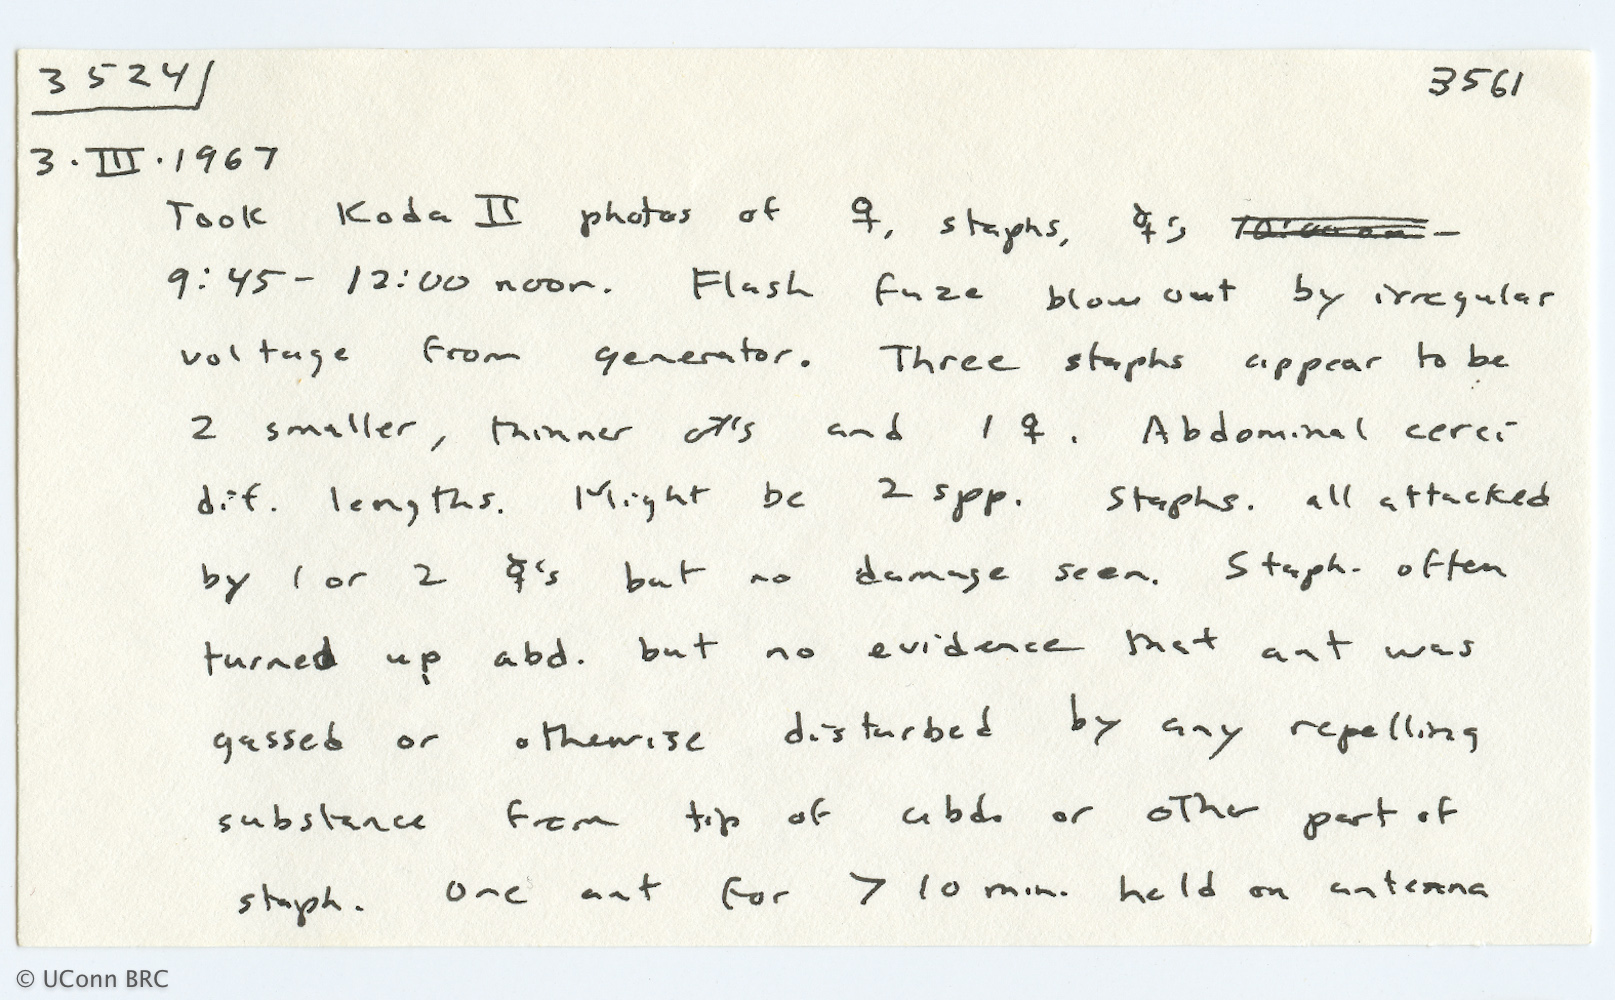 3524 3561
3·III·1967
Took Koda II photos of ♀, staphs, ☿'s –
9:45 – 12:00 noon. Flash fuze blown out by irregular
voltage from generator. Three staphs appear to be
2 smaller, thinner ♂'s and 1 ♀. Abdominal cerci
dif. lengths. Might be 2 spp. Staphs. all attacked
by 1 or 2 ☿'s but no damage seen. Staph. often
turned up abd. but no evidence that ant was
gassed or otherwise disturbed by any repelling
substance from tip of abd. or other part of
staph. One ant for > 10 min. held on antenna
© UConn BRC